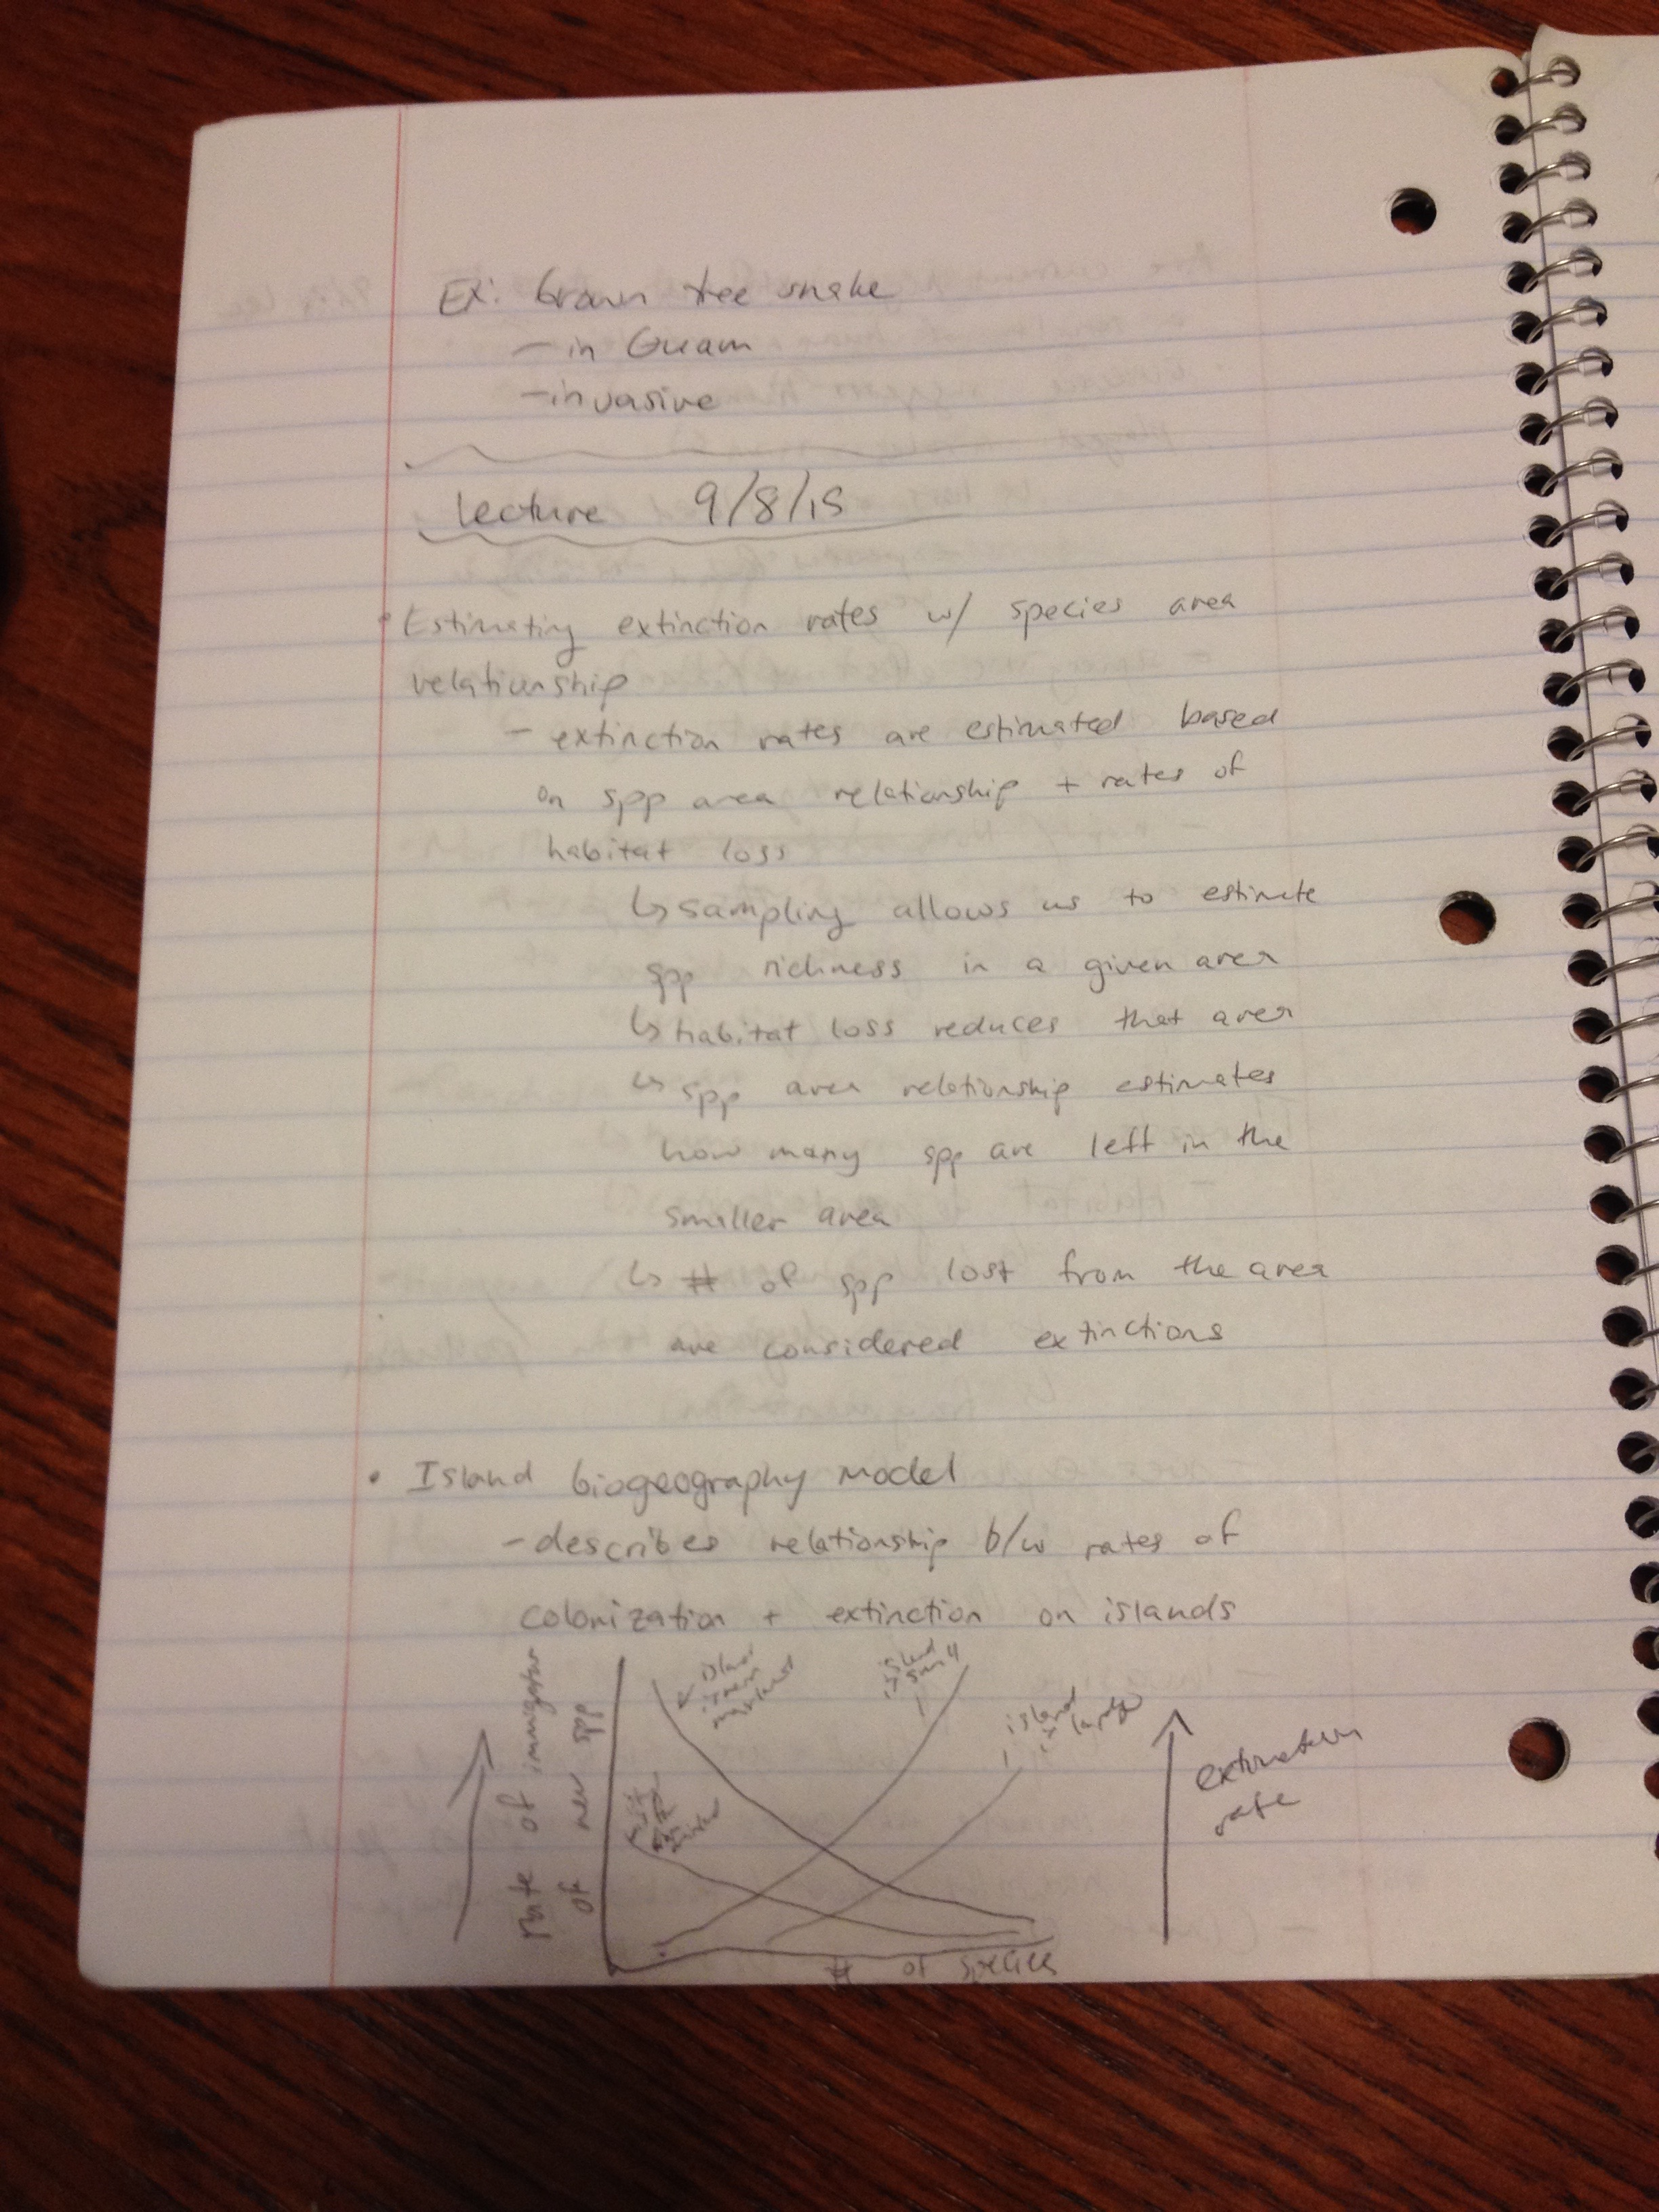 Ex: brown tree snake
- in Guam
- invasive
Lecture 9/8/15
• Estimating extinction rates w/ species area
relationship
- extinction rates are estimated based
on spp area relationship + rates of
habitat loss
↳ sampling allows us to estimate
spp richness in a given area
↳ habitat loss reduces that area
↳ spp area relationship estimates
how many spp are left in the
smaller area
↳ # of spp lost from the area
are considered extinctions
• Island biogeography model
- describes relationship b/w rates of
colonization + extinction on islands
Rate of immigration
of new spp
island
is near
mainland
island
is small
island
is large
extinction
rate
# of species